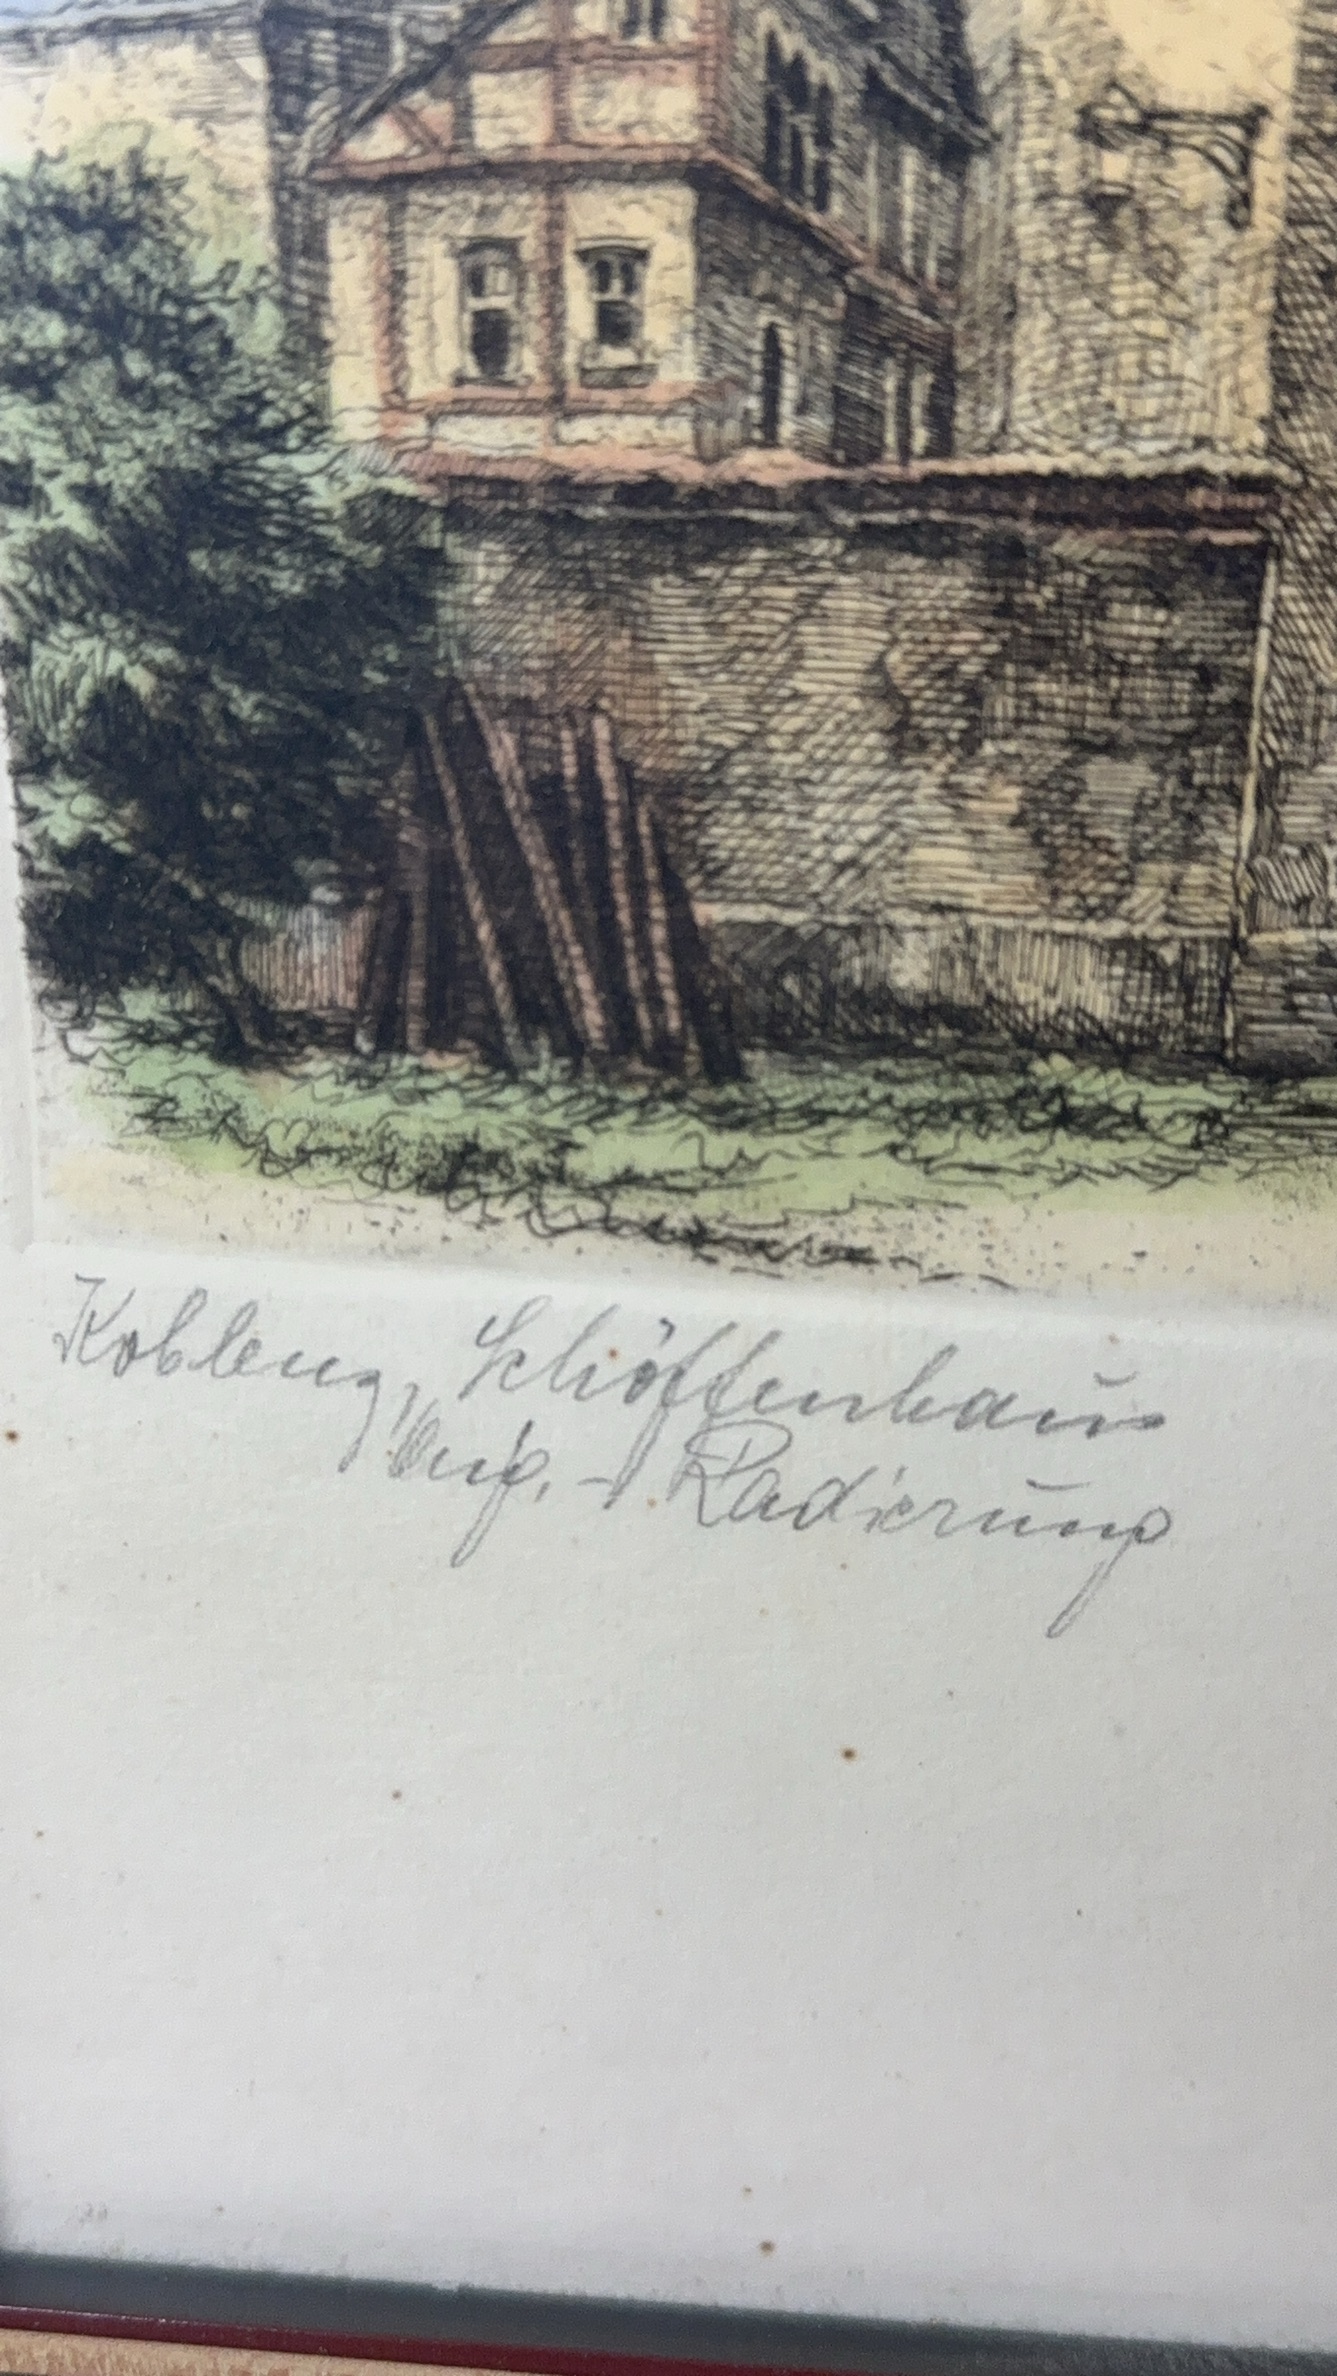 Koblenz, Schöffenhaus
Orig.-Radierung